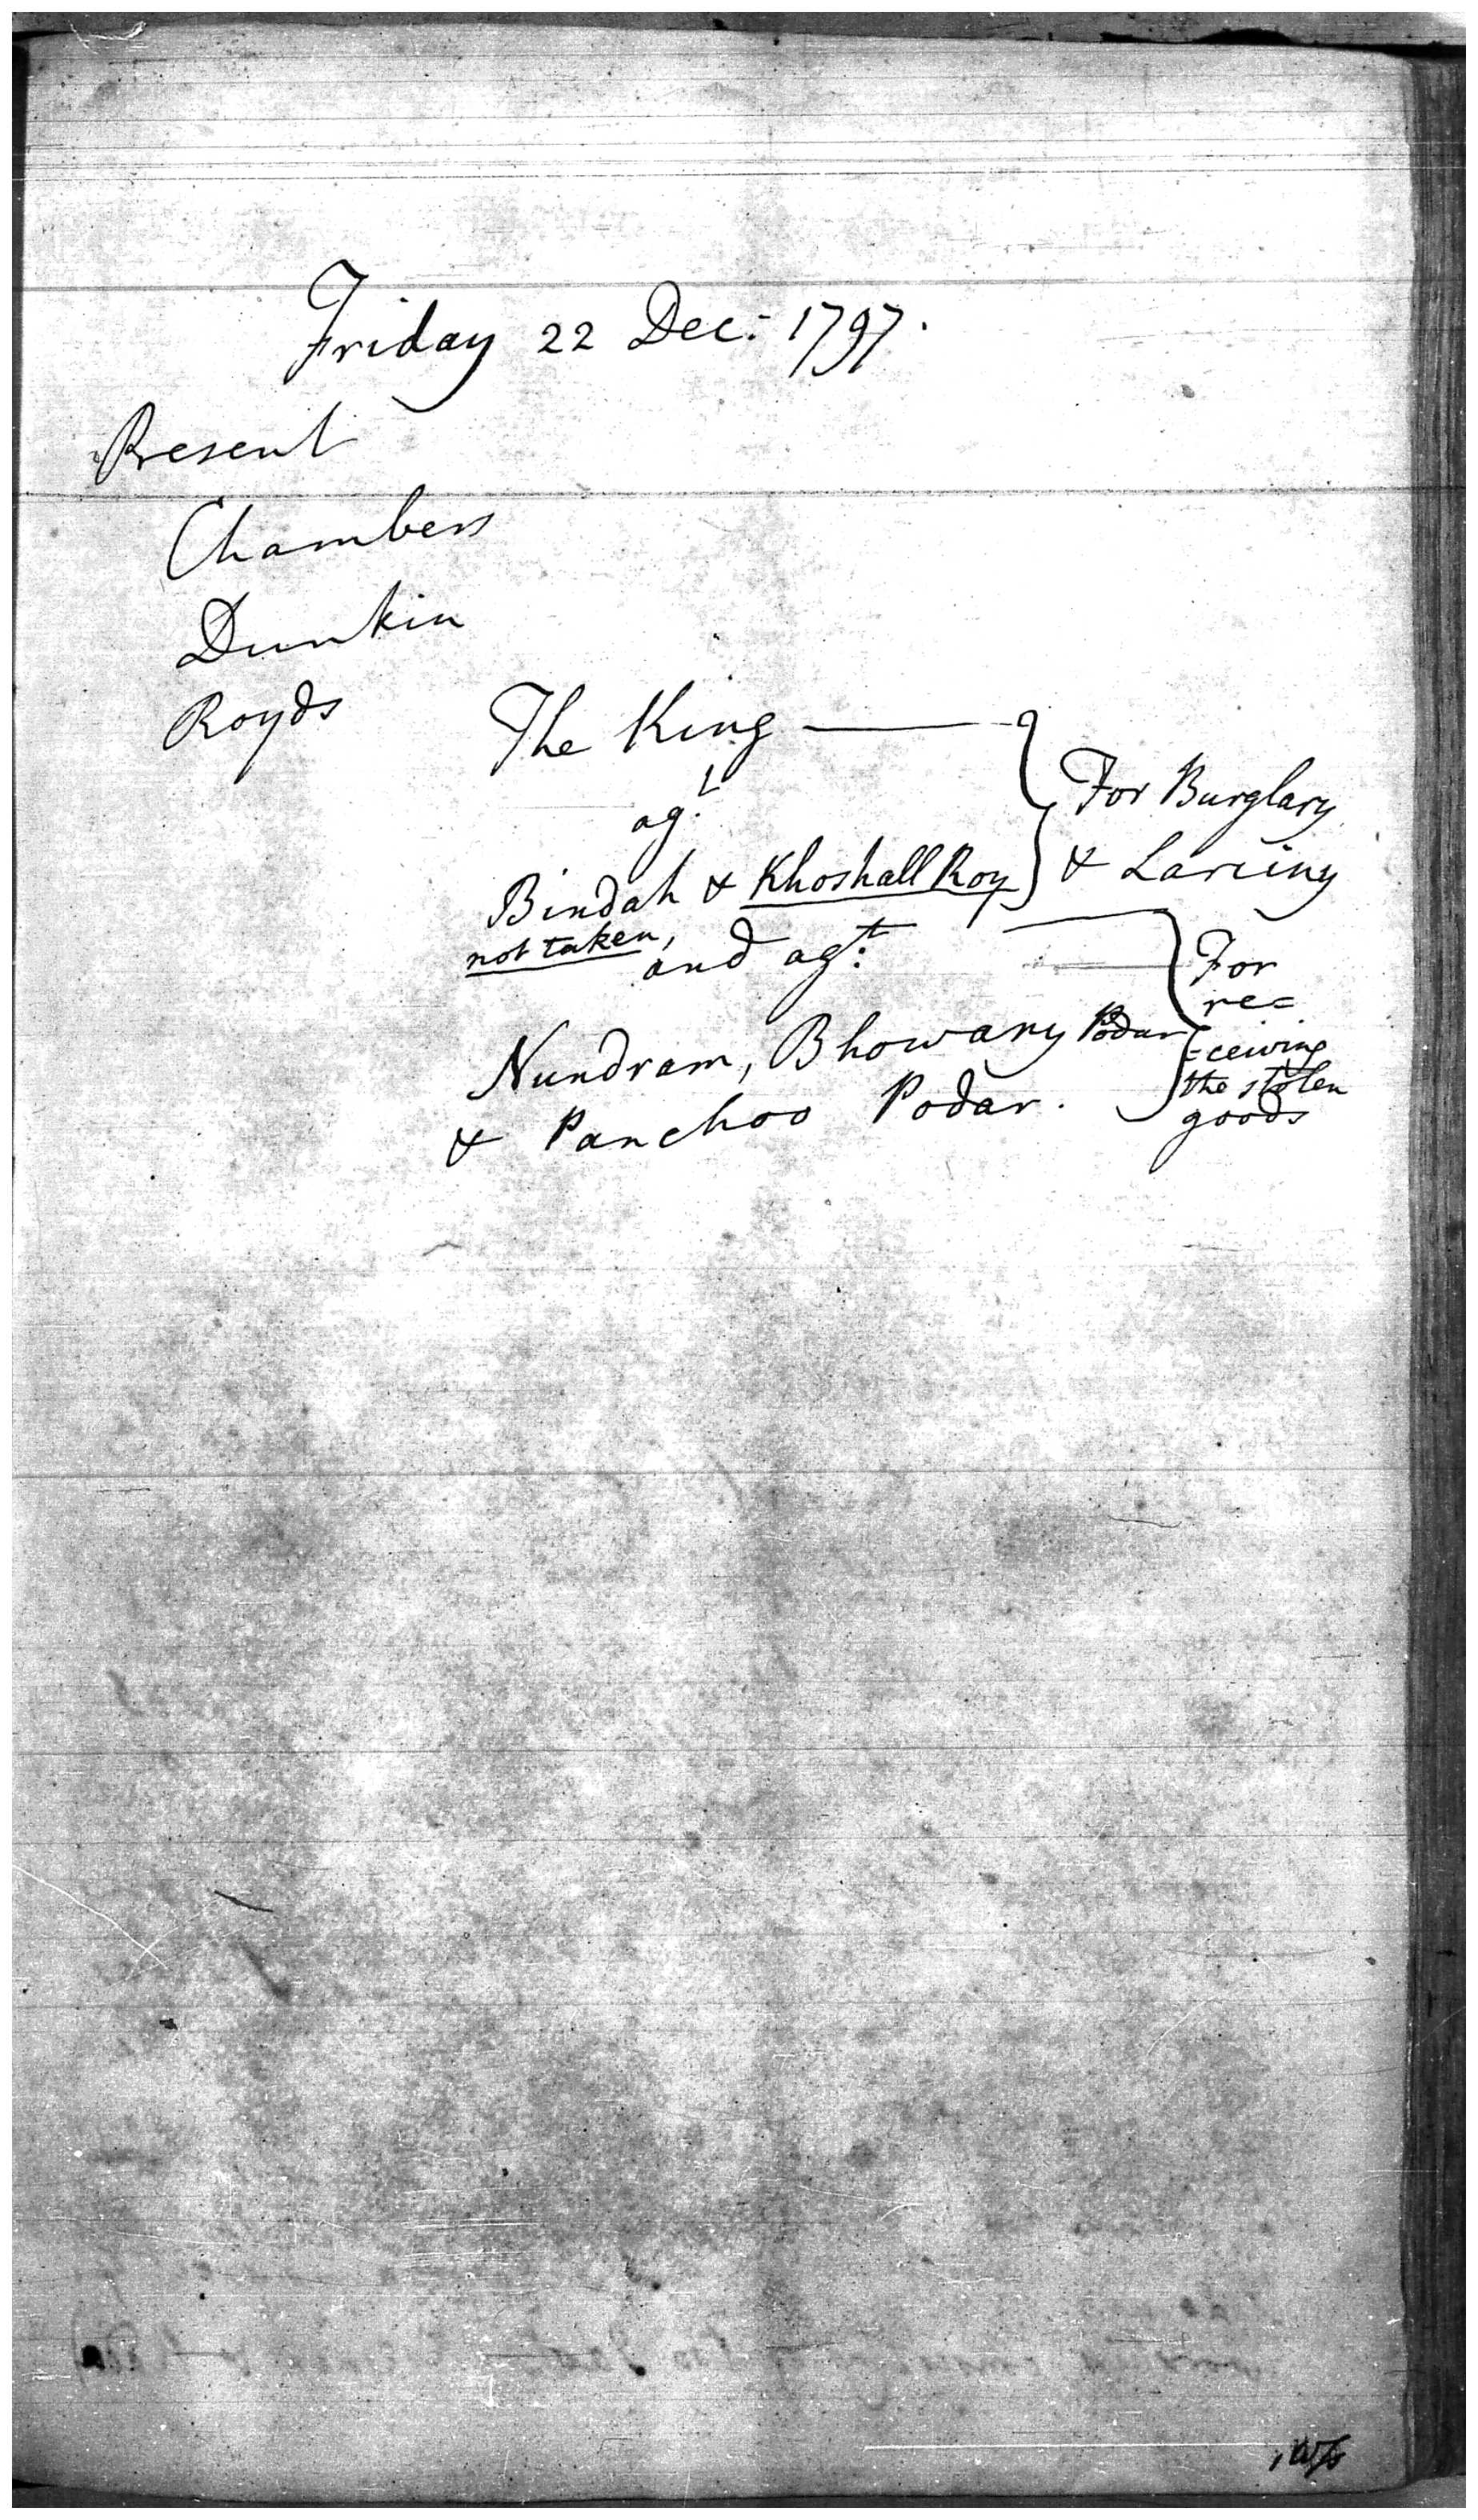 Friday 22 Dec: 1797.
Present
Chambers
Dunkin
Royds
The King
agt
For Burglary
& Larciny
Bindah & Khoshall Roy
not taken,
and agt:
For
re=
=ceiving
the stolen
goods
Nundram, Bhowany Podar
& Panchoo Podar.